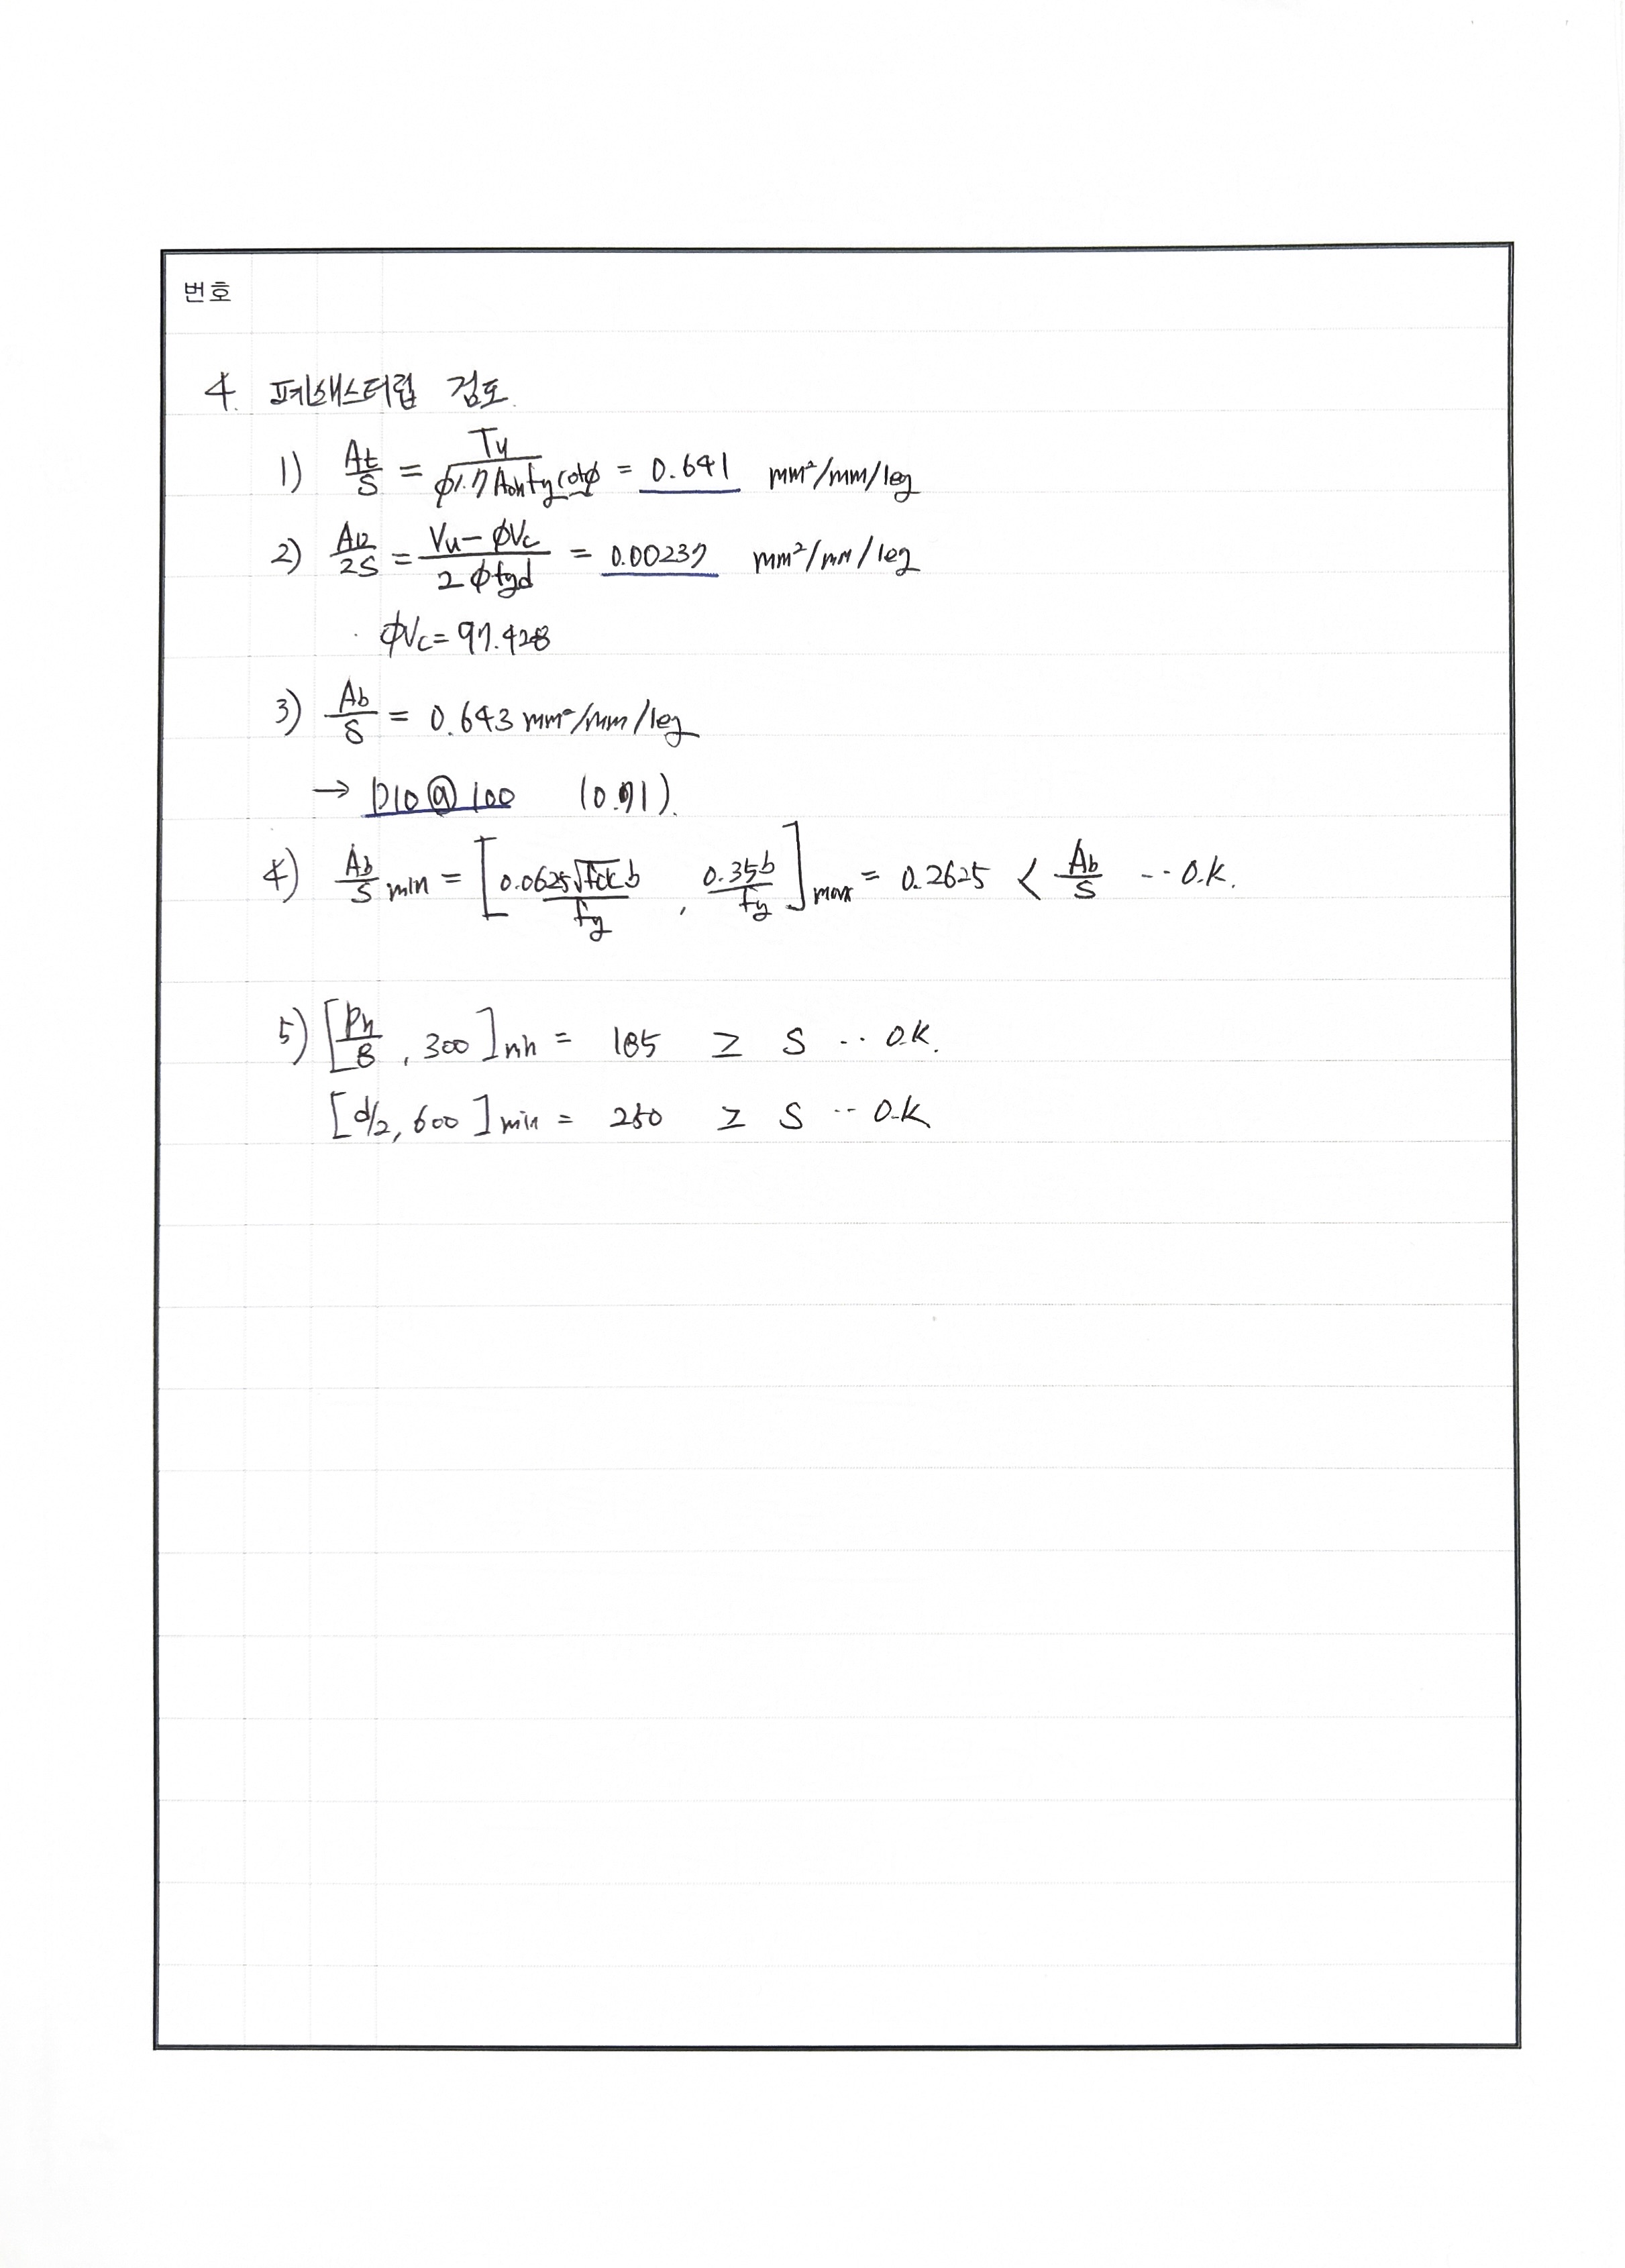 번호
4. 폐쇄스터럽 검토.
1) At/S = Tu/(φ1.7Aohfycotφ) = 0.641 mm²/mm/leg
2) Av/2S = (Vu-φVc)/(2φfyd) = 0.00237 mm²/mm/leg
· φVc = 97.428
3) Ab/S = 0.643 mm²/mm/leg
→ D10@100 (0.71).
4) Ab/S min = [0.0625√fck b/fy , 0.35b/fy]max = 0.2625 < Ab/S ·· O.K.
5) [Ph/8 , 300]min = 185 ≥ S ·· O.K.
[d/2, 600]min = 250 ≥ S ·· O.K